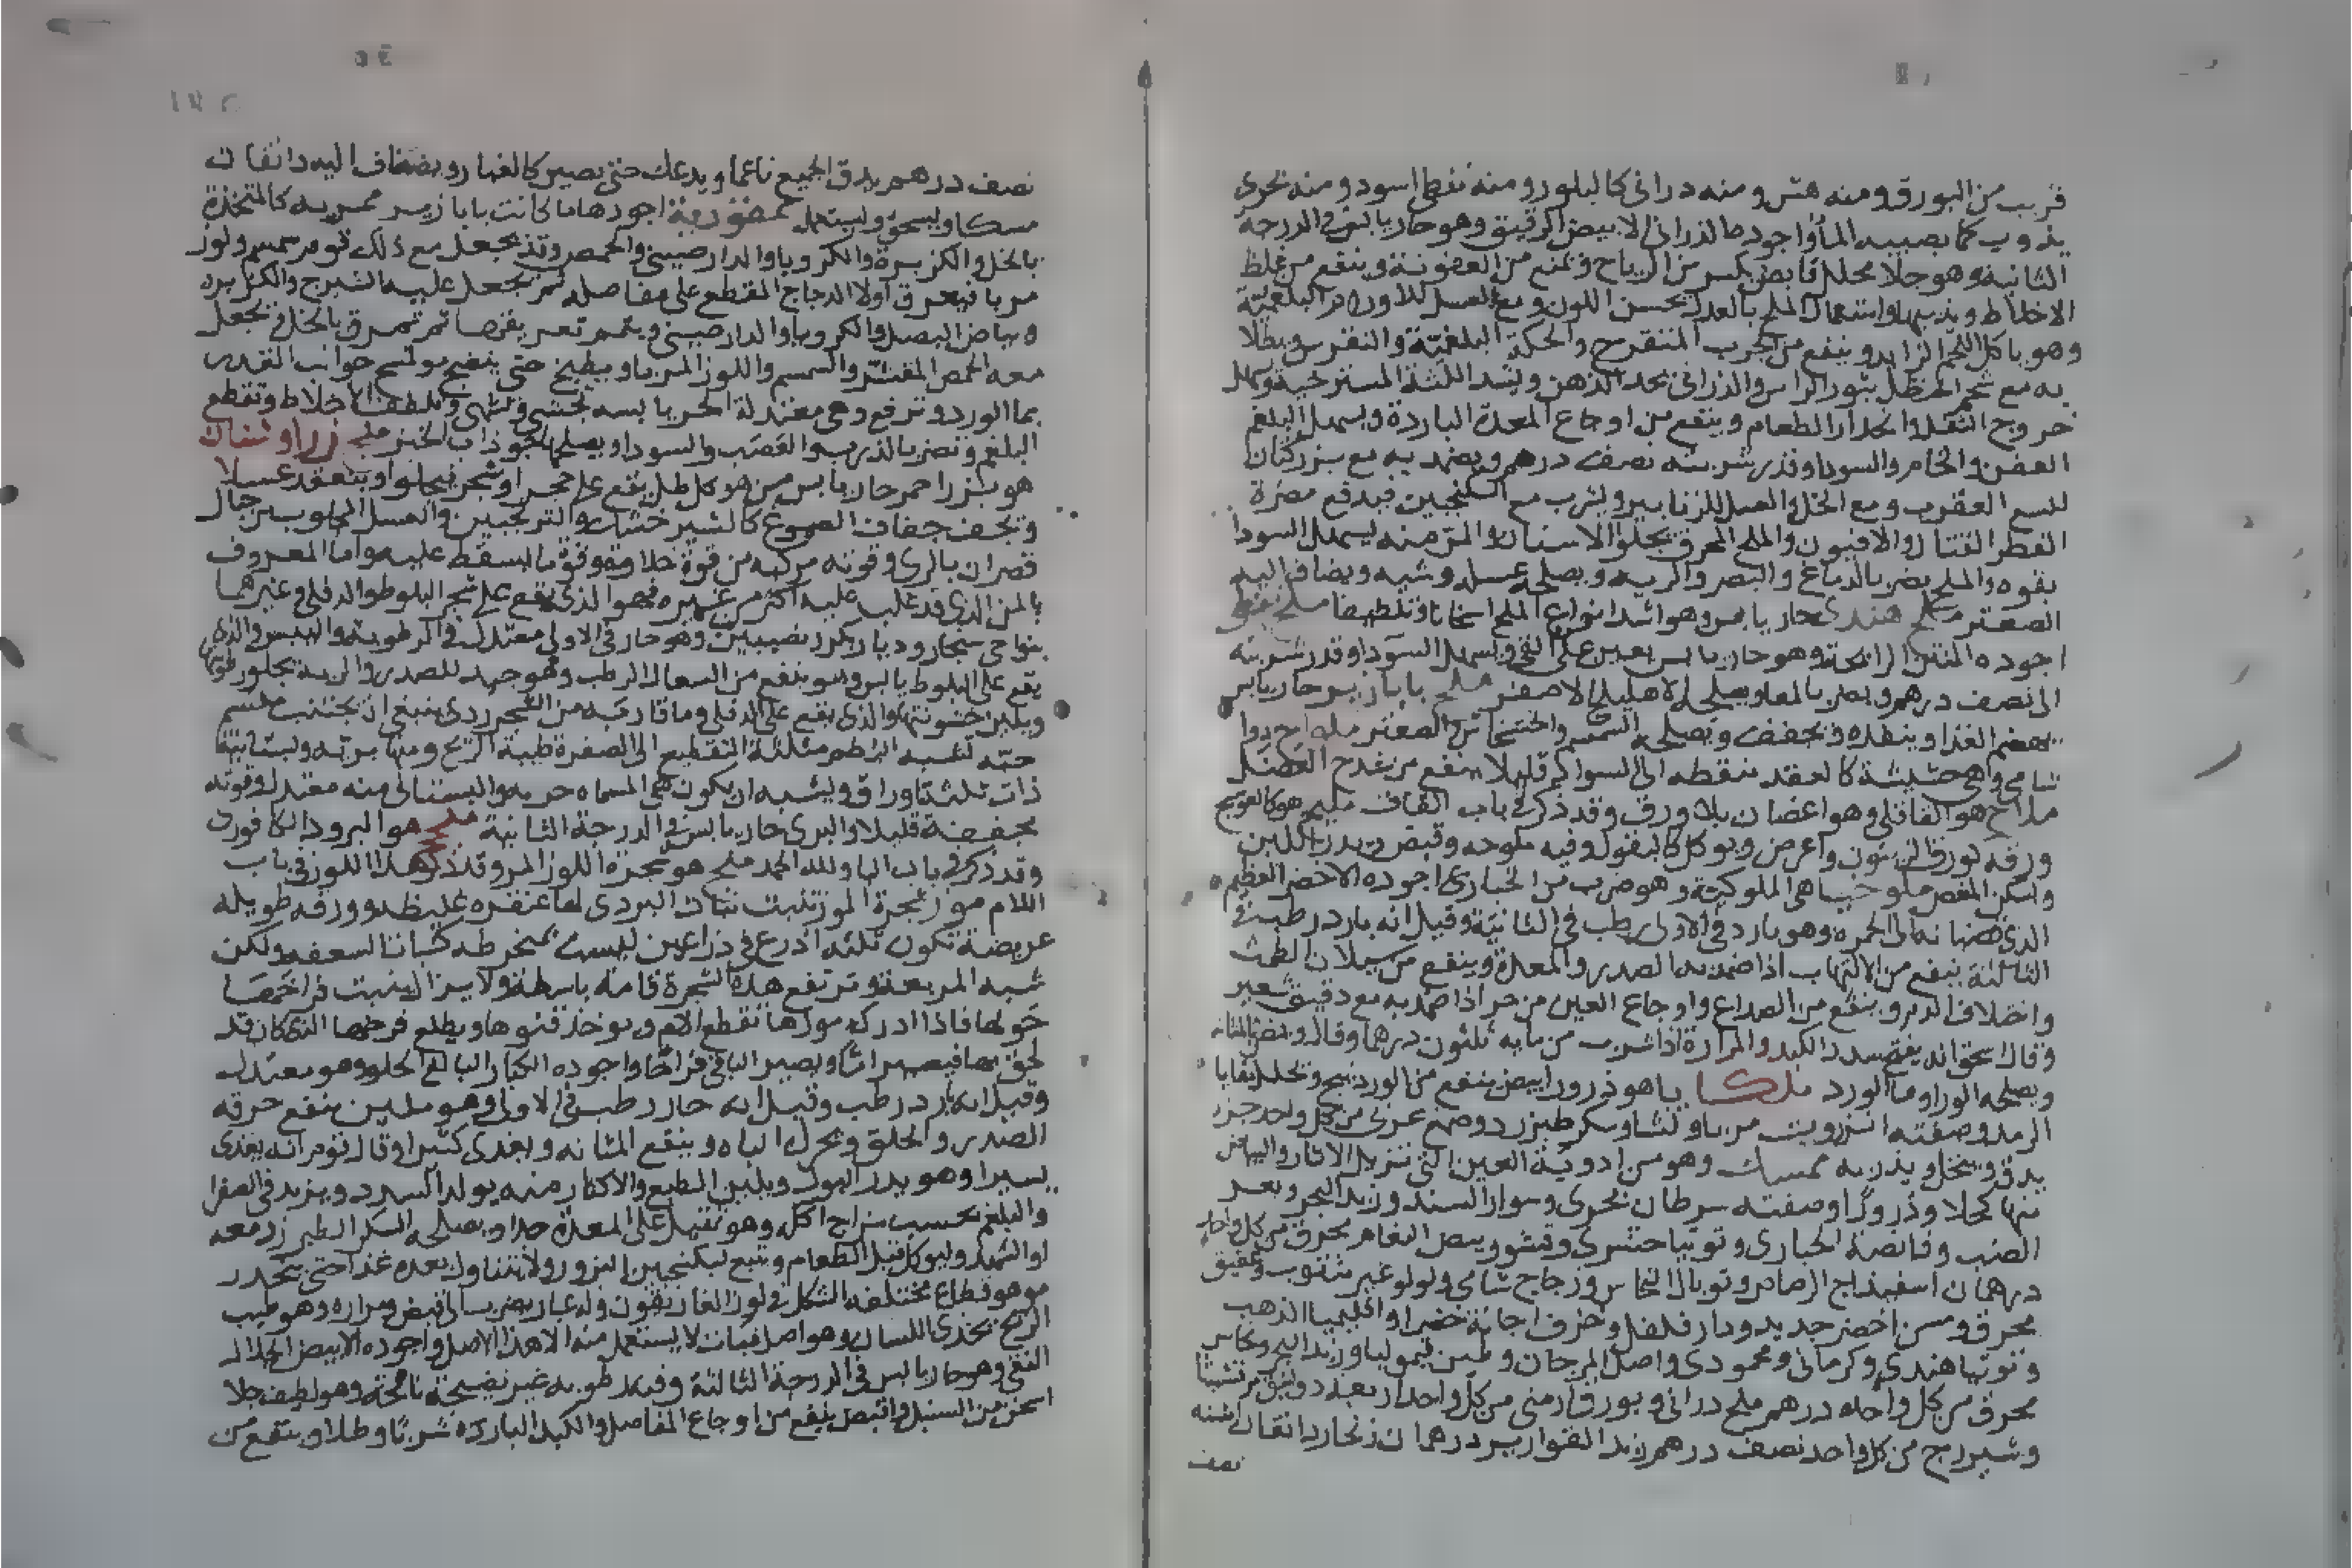 قريب من البورق ومنه هش ومنه دراني كالبلور ومنه نفطي اسود ومنه بحري
يذوب كما يصيبه الماء واجوده الدراني الابيض الرقيق وهو حار يابس في الدرجة
الثانية وهو جلا محلل قابض يكسر من الرياح ويمنع من العفونة وينفع من غلظ
الاخلاط ويذيبها واستعمال الملح بالعدل يحسن اللون ومع العسل للاورام البلغمية
وهو ياكل اللحم الزايد وينفع من الجرب المتقرح والحكة البلغمية والنقرس ويطلا
به مع شحم الحنظل بثور الراس والدراني يحد الذهن ويشد اللثة المسترخية ويسهل
خروج الثفل وانحدار الطعام وينفع من اوجاع المعدة الباردة ويسهل البلغم
العفن والخام والسودا وقدر شربته نصف درهم ويضمد به مع بزر كتان
للسع العقرب ومع الخل والعسل للزنابير ويشرب مع السكنجبين فيدفع مضرة
الفطر القتال والافيون والملح المحرق يجلو الاسنان والمر منه يسهل السودا
بقوه والملح يضر بالدماغ والبصر والريه ويصلحه غسله وشيه ويضاف اليه
الصعتر ملح هندي حار يابس وهو اشد انواع الملح اسخانا وتلطيفا ملح نفطي
اجوده المنتن الرائحة وهو حار يابس يعين على القي ويسهل السودا وقدر شربته
الى نصف درهم ويضر بالمعا ويصلحه الاهليلج الاصفر ملح بابازير حار يابس
يهضم الغذا وينفذه ويجفف ويصلحه السمسم والخشخاش والصعتر ملاح دوا
شامي وهي حشيشة كالعقد منقطه الى السواد قليلا ينفع من قدح العضل
ملاح هو القاقلي وهو اغصان بلا ورق وقد ذكر في باب القاف مليح هو كالعوسج
ورقه كورق الزيتون واعرض ويوكل كالبقول وفيه ملوحه وقبض ويدر اللبن
وليسكن المغص ملوخيا هي الملوكية وهو ضرب من الخبازي اجوده الاخضر العظيم
الذي قضبانه الى الحمرة وهو بارد في الاولى رطب في الثانية وقيل انه بارد رطب في
الثالثة ينفع من الالتهاب اذا ضمد به الصدر والمعدة وينفع من سيلان الطمث
واختلاف الدم وينفع من الصداع واوجاع العين من حر اذا ضمد به مع دقيق شعير
وقال اسحق انه يفتح سدد الكبد والمرارة اذا شرب من مايه ثلثون درهما وقال ويضر بالمثانه
ويصلحه الورد وما الورد ملكايا هو ذرور ابيض ينفع من الوردينج ويحلل بقايا
الرمد وصفته انزروت مربا ونشا وسكر طبرزد وصمغ عربي من كل واحد جزء
يدق وينخل ويذر به ممسك وهو من ادوية العين التي تزيل الاثار والبياض
منها كحلا وذرورا وصفته سرطان بحري وسوار السند وزبد البحر وبعر
الضب وقانصة الحباري وتوتيا حشري وقشور بيض النعام محرق من كل واحد
درهمان اسفيداج الرصاص وتوبال النحاس وزجاج شامي ولولو غير مثقوب وعقيق
محرق ومسن اخضر جديد ودار فلفل وخزف اجانة خضرا واقليميا الذهب
وتوتيا هندي وكرماني ومحمودي واصل المرجان وطين قيموليا وزبد البحر ونحاس
محرق من كل واحد درهم ملح دراني وبورق ارمني من كل واحد اربعة دوانيق مرقشيثا
وشيزرج من كل واحد نصف درهم زبد القوارير درهمان زنجار دانقان
نصف
نصف درهم يدق الجميع ناعما ويدعك حتى يصير كالغبار ويضاف اليه دانقان
مسكا ويسحق ويستعمل اجودها ما كانت بابازير كالمتخذة
بالخل والكزبرة والكرويا والدارصيني والحمص وقد يجعل مع ذلك قوم سمسم ولوز
مربا فيعرق اولا الدجاج المقطع على مفاصله ثم يجعل عليه الشيرج والكزبره
وبياض البصل والكرويا والدارصيني ويتمم تعريقها ثم تمرق بالخل ويجعل
معه الحمص المقشر والسمسم واللوز المربا ويطبخ حتى ينضج وتمسح جوانب القدر
بما الورد وترفع وهي معتدلة الحر يابسه تحشي وتشهي وتلطف الاخلاط وتقطع
البلغم وتضر بالذرب والعصب والسودا ويصلحها جوذاب الخبز ملح
هو بزر احمر حار يابس من هو كل طل يقع على حجر او شجر فيحلو وينعقد عسلا
ويجف جفاف الصموغ كالشير خشك والترنجبين والعسل المجلوب من جبال
قصران بالري وقوته مركبه من قوة حلاوة وقوة ما يسقط عليه واما المعروف
بالمن الذي قد غلب عليه اكثر من غيره فهو الذي يقع على شجر البلوط والدفلي وغيرهما
بنواحي سنجار وديار بكر ونصيبين وهو حار في الاولى معتدل في الرطوبة واليبس والذي
يقع على البلوط يابس وهو ينفع من السعال الرطب وهو جيد للصدر والريه يجلو رطوبتها
ويلين خشونتها والذي يقع على الدفلي وما قاربه من الشجر ردي ينبغي ان يجتنب منشم
حبه تشبه البطم مثلثة التقطيع الى الصفرة طيبة الريح ومنها بريه وبستانيه
ذات ثلثة اوراق ويشبه ان يكون هي المسماه حربه والبستاني منه معتدل وقوته
مجففة قليلا والبري حار يابس في الدرجة الثانية ملح هو البرود الكافوري
وقد ذكر في باب البا ولله الحمد منح هو شجرة اللوز المر وقد ذكر هذا اللوز في باب
اللام موز شجرة الموز تنبت نبات البردي لها عنقره غليظه وورقه طويله
عريضة تكون ثلثه اذرع في ذراعين ليست بمنخرطه كنبات السعفه ولكن
شبه المربعة وترتفع هذه الشجرة قامة باسطة ولا يزال ينبت فراخها
حولها فاذا ادرك موزها تقطع الام ويوخذ قنوها ويطلع فرخها الذي كان قد
لحق بها فيصير اما ويصير الباقي فراخا واجوده الكبار البالغ الحلو وهو معتدل
وقيل انه بارد رطب وقيل انه حار رطب في الاولى وهو ملين ينفع حرقه
الصدر والحلق ويحرك الباه وينفع المثانه ويغذي كثيرا وقال قوم انه يغذي
يسيرا وهو يدر البول ويلين الطبع والاكثار منه يولد السدد ويزيد في الصفرا
والبلغم بحسب مزاج اكله وهو ثقيل على المعدة جدا ويصلحه السكر الطبرزد معه
او الشهد وليوكل قبل الطعام ويتبع بسكنجبين البزور ولا يتناول بعده غذا حتى ينحدر
مو هو قطاع مختلفه الشكل في لون الغاريقون وله غبار يضرب الى قبض ومراره وهو طيب
الريح يحذي اللسان وهو اصل نبات لا يستعمل منه الا هذا الاصل واجوده الابيض الجلال
النقي وهو حار يابس في الدرجة الثالثة وفيه رطوبه غير نضيجة نافخة وهو لطيف جلا
اسخن من السنبل واقبض ينفع من اوجاع المفاصل والكبد الباردة شربا وطلا وينفع من